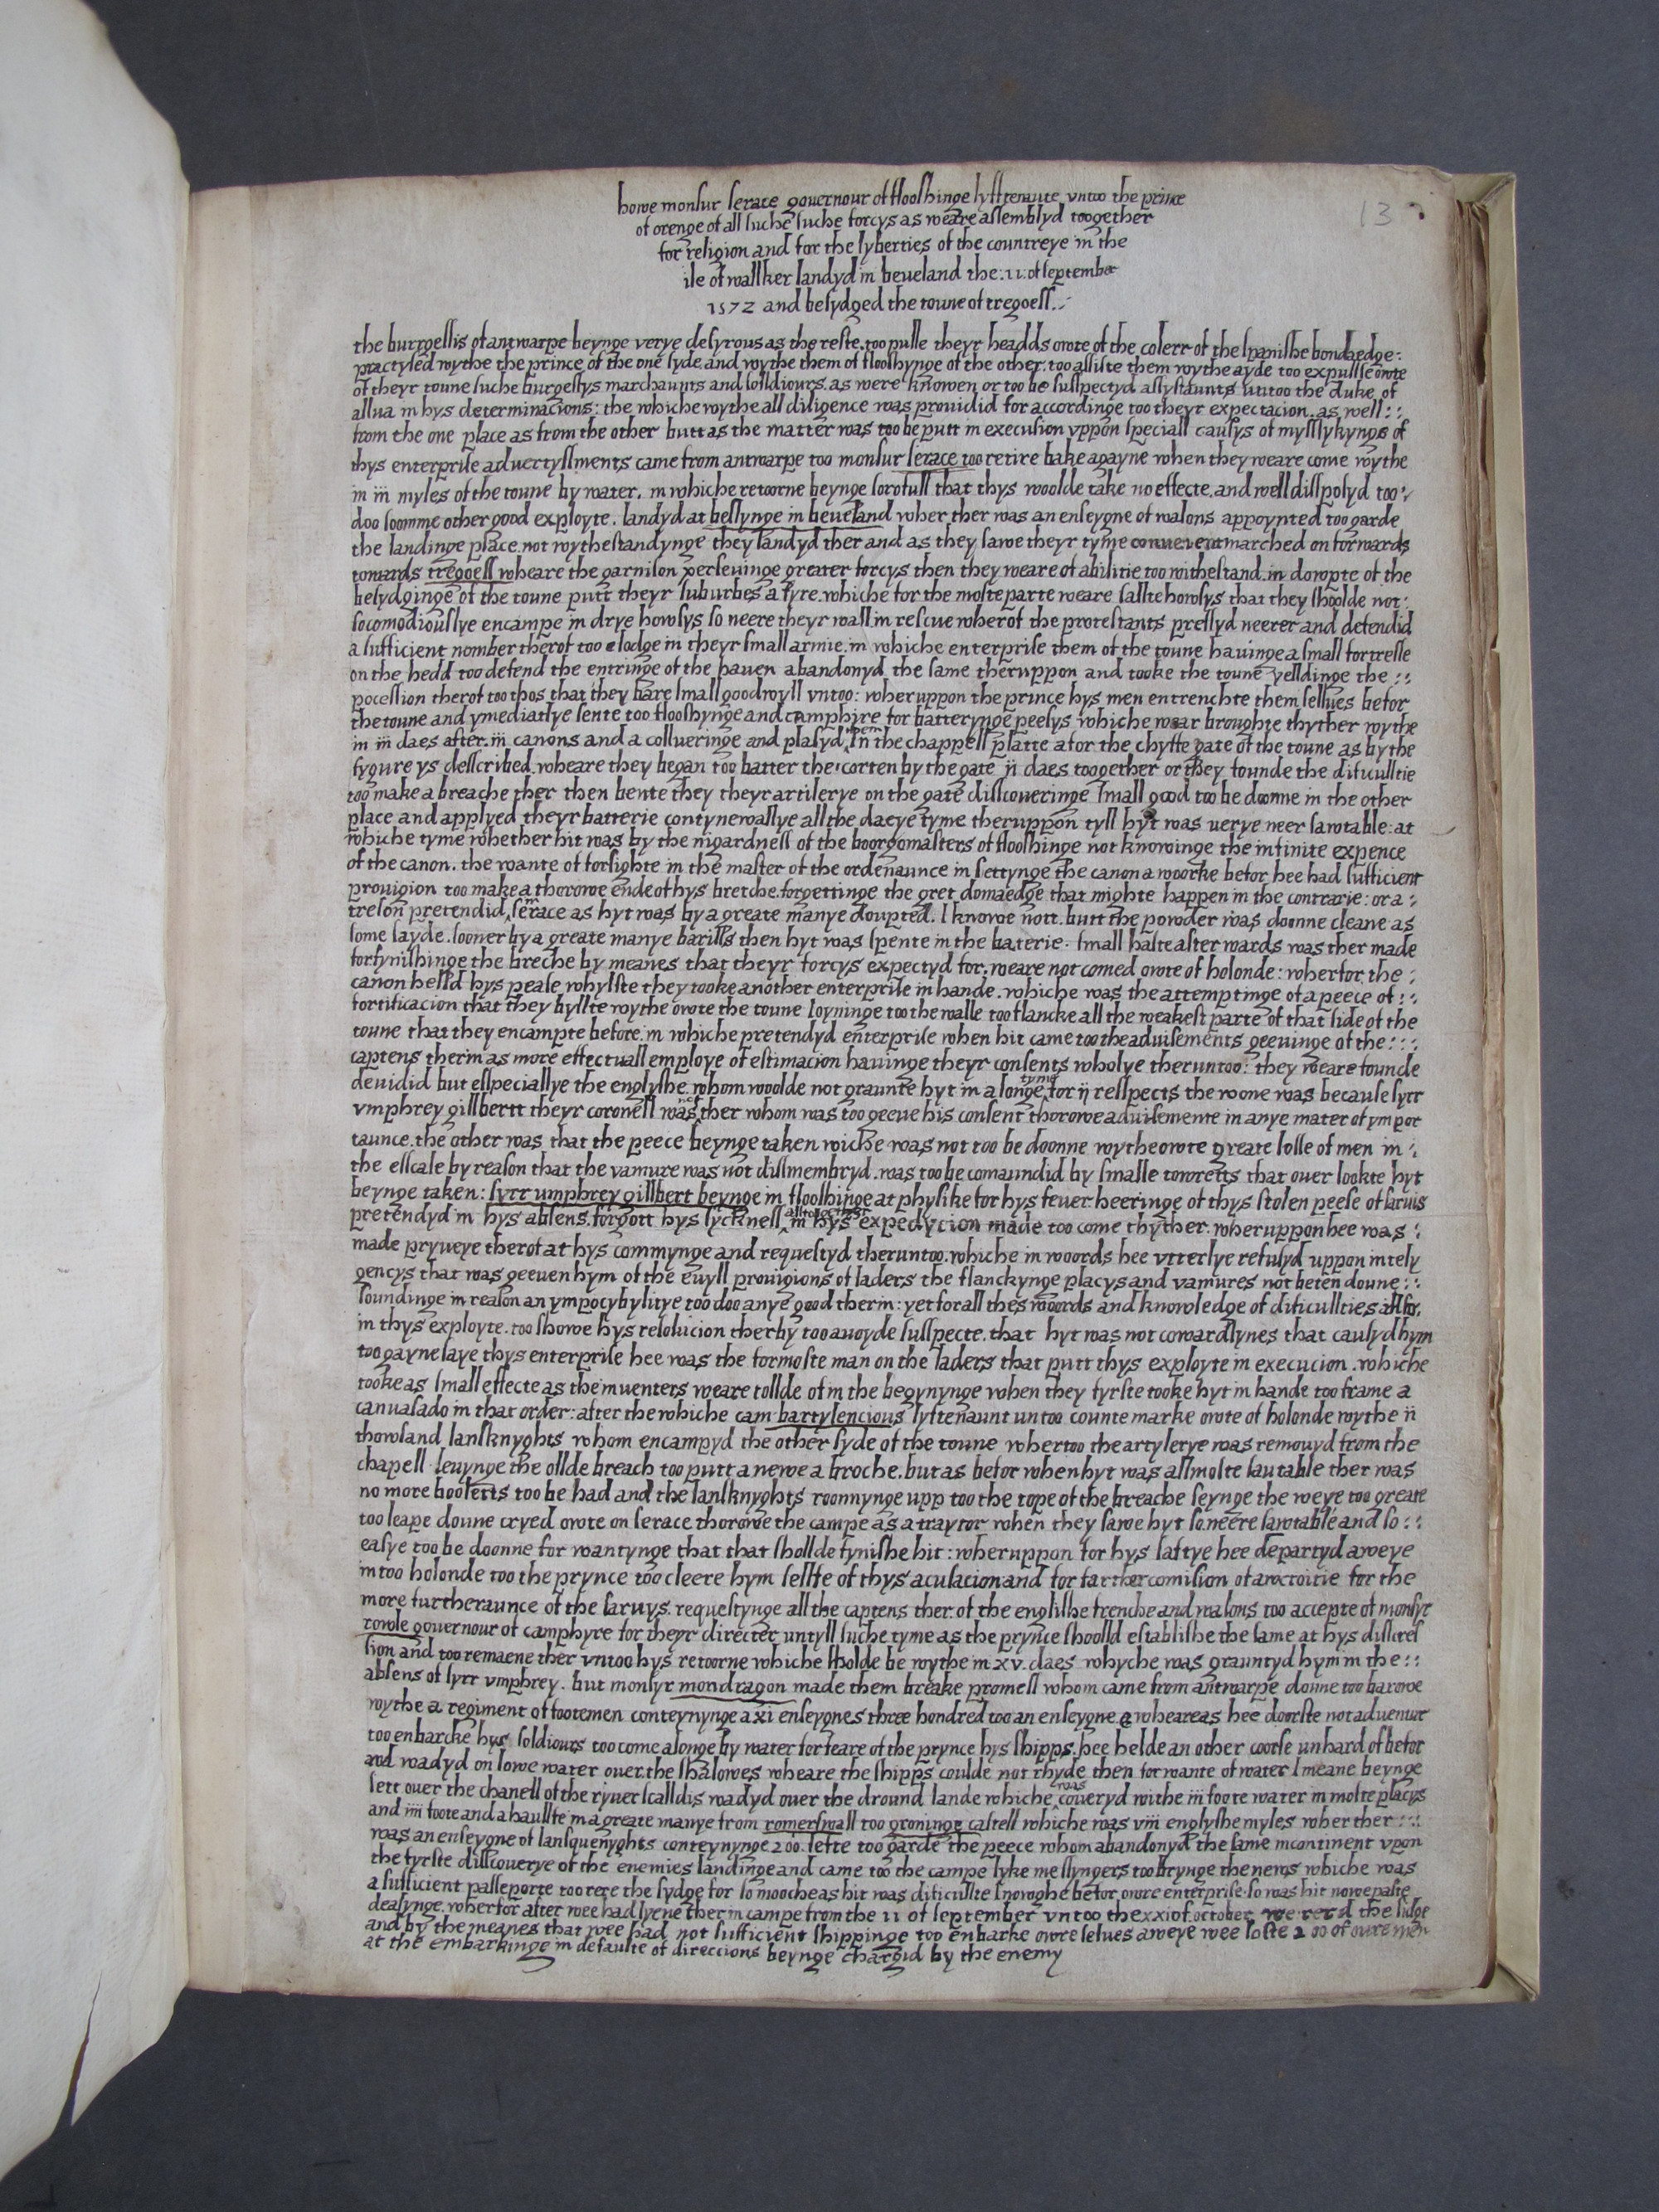 howe monsur serace governour of flooshinge lyfftenante untoo the prince
of orenge of all suche suche forcys as weare assemblyd toogether
for religion and for the lyberties of the countreye in the
ile of wallker landyd in beveland the :11: of september
1572 and besydged the toune of tregoess
13
the burgessis of antwarpe beynge verye desyrous as the reste too pulle theyr headds owte of the colerr of the spanishe bondaedge:
practysed wythe the prince of the one syde and wythe them of flooshynge of the other, too assiste them wythe ayde too expullse owte
of theyr toune suche burgessys marchaunts and solldiours as were knowen or too be suspectyd assystaunts untoo the duke of
allva in hys determinacions: the whiche wythe all diligence was providid for accordinge too theyr expectacion as well
from the one place as from the other butt as the matter was too be putt in execusion uppon speciall causys of myslykynge of
thys enterprise advertyssments came from antwarpe too monsur serace too retire bake agayne when they weare come wythe
in iii myles of the toune by water, in whiche retoorne beynge sorofull that thys woolde take no effecte, and well disposyd too
doo soomme other good exployte, landyd at bessynge in beveland wher ther was an enseygne of walons appoynted too garde
the landinge place, not wythestandynge they landyd ther and as they sawe theyr tyme convenent marched on forwards
towards tregoess wheare the garnison perseuinge greater forcys then they weare of abilitie too withestand in dowpte of the
besydginge of the toune putt theyr suburbes a fyre, whiche for the moste parte weare sallte howsys that they shoolde not
so comodiouslye encampe in drye howsys so neere theyr wall, in rescue wherof the protestants pressyd neerer and defendid
a sufficient nomber therof too lodge in theyr small armie, in whiche enterprise them of the toune havinge a small fortresse
on the hedd too defend the entringe of the haven abandonyd the same theruppon and tooke the toune yelldinge the
pocession therof too thos that they bare small good wyll untoo: wheruppon the prince hys men entrenchte them sellves befor
the toune and ymediatlye sente too flooshynge and camphire for batterynge peesys whiche wear broughte thyther wythe
in iii daes after, iii canons and a collveringe and plasyd them in the chappell platte afor the chyffe gate of the toune as by the
fygure ys desscribed, wheare they began too batter the corten by the gate ii daes toogether or they founde the dificulltie
too make a breache ther then bente they theyr artilerye on the gate disscoveringe small good too be doonne in the other
place and applyed theyr batterie contynewallye all the daeye tyme theruppon tyll hyt was verye neer sawtable: at
whiche tyme whether hit was by the nigardness of the boorgomasters of flooshinge not knowinge the infinite expence
of the canon, the wante of forsighte in the master of the ordenaunce in settynge the canon a woorke befor hee had sufficient
provigion too make a thorowe ende of hys bretche, forgettinge the gret domaedge that mighte happen in the contrarie: or a
treson pretendid in serace as hyt was by a greate manye doupted, I knowe nott, butt the powder was doonne cleane as
some sayde, sooner by a greate manye barills then hyt was spente in the baterie. small haste afterwards was ther made
for fynishinge the breche by meanes that theyr forcys expectyd for, weare not comed owte of holonde: wherfor the
canon helld hys peale, whyllste they tooke another enterprise in hande, whiche was the attemptinge of a peece of
fortificacion that they byllte wythe owte the toune ioyninge too the walle too flancke all the weakest parte of that side of the
toune that they encampte before, in whiche pretendyd enterprise when hit came too the advisements geevinge of the
captens therin as more effectuall employe of estimacion havinge theyr consents wholye theruntoo: they weare founde
devidid but esspeciallye the englyshe whom woolde not graunte hyt in a longe tyme for ii resspects the woone was because syrr
umphrey gillbertt theyr coronell was not ther whom was too geeve his consent thorowe advisemente in anye mater of ympor
taunce, the other was that the peece beynge taken wiche was not too be doonne wytheowte greate losse of men in
the esscale by reason that the vamure was not dissmembryd, was too be comaundid by smalle towretts that over lookte hyt
beynge taken: syrr umphrey gillbert beynge in flooshinge at physike for hys fever, heeringe of thys stolen peese of sarvis
pretendyd in hys absens, forgott hys syckness alltoogether in hys expedycion made too come thyther, wheruppon hee was
made pryveye therof at hys commynge and requestyd theruntoo, whiche in woords hee utterlye refusyd uppon intely
gencys that was geeven hym of the evyll provigions of laders the flanckynge placys and vamures not beten doune
soundinge in reason an ympocybylitye too doo anye good therin: yet for all thes woords and knowledge of dificullties
in thys exployte, too showe hys resolucion therby too avoyde susspecte, that hyt was not cowardlynes that causyd hym
too gaynesaye thys enterprise hee was the formoste man on the laders that putt thys exployte in execucion, whiche
tooke as small effecte as the inventers weare tollde of in the begynynge when they fyrste tooke hyt in hande too frame a
canvasado in that order: after the whiche cam bartylencious lyftenaunt untoo counte marke owte of holonde wythe ii
thowsand lansknyghts whom encampyd the other syde of the toune whertoo the artylerye was removyd from the
chapell levynge the ollde breach too putt a newe a broche, but as befor when hyt was allmoste sautable ther was
no more booletts too be had and the lansknyghts roonnynge upp too the tope of the breache seynge the weye too greate
too leape doune cryed owte on serace thorowe the campe as a traytor when they sawe hyt so neere sawtable and so
easye too be doonne for wantynge that that shollde fynishe hit: wheruppon for hys saftye hee departyd aweye
in too holonde too the prynce too cleere hym sellfe of thys acusacion and for farther comision of awctoritie for the
more furtheraunce of the sarvys, requestynge all the captens ther of the englishe frenche and walons too accepte of monsyr
rowle governour of camphyre for theyr directer untyll suche tyme as the prynce shoolld establishe the same at hys disscres
sion and too remaene ther untoo hys retoorne whiche sholde be wythe in xv. daes whyche was grauntyd hym in the
absens of syrr umphrey. but monsyr mondragon made them breake promess whom came from antwarpe doune too barowe
wythe a regiment of footemen conteynynge a xi enseygnes three hondred too an enseygne wheareas hee doorste not adventur
too enbarcke hys soldiours too come alonge by water for feare of the prynce hys shipps, hee helde an other coorse unhard of befor
and wadyd on lowe water over the shalowes wheare the shipps coulde not rhyde then for wante of water I meane beynge
sett over the chanell of the ryver scalldis wadyd over the dround lande whiche was coveryd withe iii foote water in moste placys
and iiii foote and a haullte in a greate manye from romerswall too groninge castell whiche was viii englyshe myles wher ther
was an enseygne of lansquenyghts conteynynge 200. lefte too garde the peece whom abandonyd the same incontinent upon
the fyrste disscoverye of the enemies landinge and came too the campe lyke messyngers too brynge the news whiche was
a sufficient passeporte too rere the sydge for so mooche as hit was dificullte inowghe befor owre enterprise so was hit nowe paste
deasynge, wherfor after wee had lyene ther in campe from the 11 of september untoo the xxi of october we rered the sidge
and by the meanes that wee had not sufficient shippinge too enbarke owre selves aweye wee loste 200 of owre men
at the embarkinge in defaulte of direccions beynge chargid by the enemy